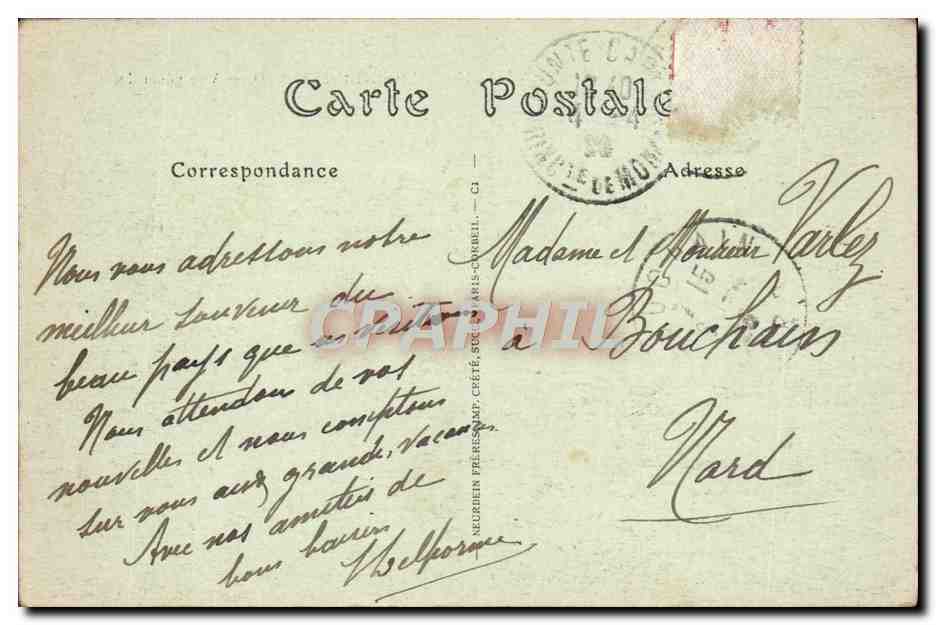 Carte Postale
Correspondance
Adresse
Nous vous adressons notre
meilleur souveur du
beau pays que ns visitons
Nous attendons de vos
nouvelles et nous comptons
sur vous aux grandes vacances
Avec nos amitiés de
bons baisers
Madame et Monsieur Varlez
à Bouchain
Nord
NEURDEIN FRÈRES. IMP. CRÉTÉ, SUCC. PARIS-CORBEIL. — CI
CPAPHIL